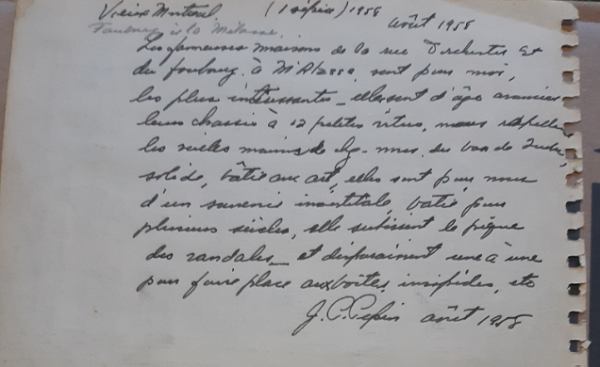 Vieux Montreal (1 sépia) 1958
Faubourg à la Mélasse. août 1958
Les fameuses maisons de la rue Dorchester Et
du faubourg à M'Alasse, sont pour moi,
les plus intéressantes - elles sont d'âge avancé
leurs chassis à 12 petites vitres, nous rappellent
les vieilles maisons de chez-nous, du bas de
solide, bâtie aux art, elles sont pour nous
d'un souvenir inestimable, batie pour
plusieurs siècles, elle subissent le pique
des vandales - et disparaissent une à une
pour faire place aux boîtes, insipides, etc
J. P. Pepin août 1958